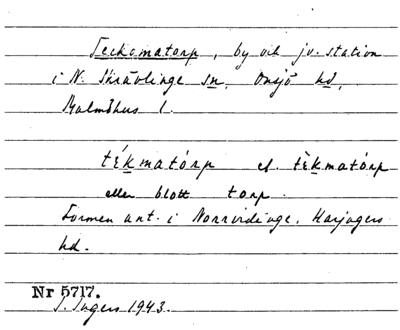 Teckomatorp, by och jv. station
i N. Skrävlinge sn, Onsjö hd,
Malmöhus l.
tékmatårp el. tèkmatårp
eller blott torp.
Formen ant. i Norrvidinge, Harjagers
hd.
Nr 5717.
I. Ingers 1943.